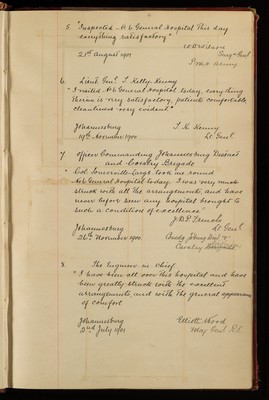 5. "Inspected No 6 General Hospital this day
everything satisfactory"
W. D. Wilson
Surg. Genl
21st August 1901
P.M.O. Army
6. Lieut Genl. T. Kelly-Kenny
"I visited No 6 General Hospital today, everything
therein is very satisfactory, patients comfortable
cleanliness very evident"
Johannesburg
T. K. Kenny
19th November 1900
Lt Genl.
7. Officer Commanding Johannesburg District
and Cavalry Brigade
"Col. Somerville-Large took me round
No 6 General Hospital today. I was very much
struck with all the arrangements and have
never before seen any hospital brought to
such a condition of excellence"
J. D. P. French
Johannesburg
Lt Genl.
26th November 1900
Comdg Joburg Dist &
Cavalry
8. The Engineer in Chief
"I have been all over this hospital and have
been greatly struck with the excellent
arrangements, and with the general appearance
of comfort
Johannesburg
Elliott Wood
2nd July 1901
Maj. Genl. R.E